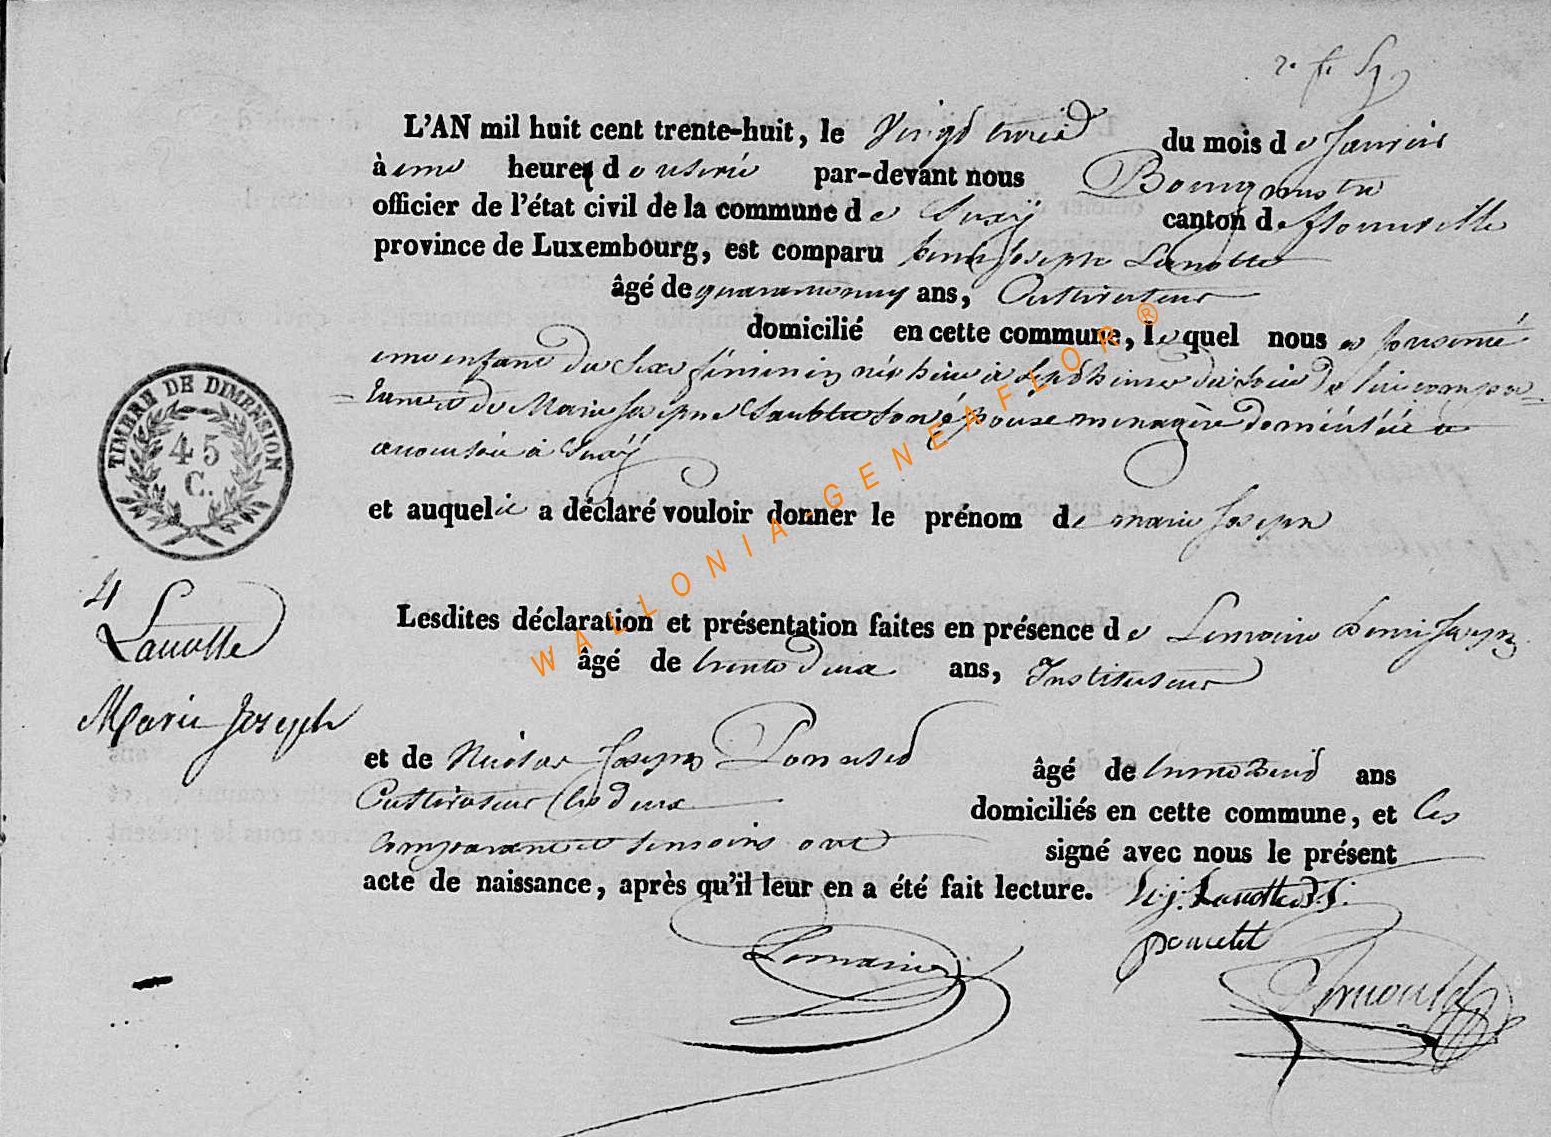 L'AN mil huit cent trente-huit, le Vingt trois du mois de Janvier
à une heure du par-devant nous Bourgmestre
officier de l'état civil de la commune de Suxÿ canton de florenville
province de Luxembourg, est comparu Joseph Lanotte
âgé de ans, Cultivateur
domicilié en cette commune, lequel nous a présenté
une enfant du Sexe féminin née hier à Sept heures du Soir De lui compa=
=rant et de Marie Joseph Son épouse menagère domiciliée
à Suxÿ
et auquel a déclaré vouloir donner le prénom de marie Joseph
TIMBRE DE DIMENSION
45
C.
4
Lanotte
Marie Joseph
Lesdites déclaration et présentation faites en présence de Lemaire Joseph
âgé de trente Deux ans, Instituteur
et de Nicolas Joseph Poncelet âgé de ans
Cultivateur tous deux domiciliés en cette commune, et les
comparant et temoins ont signé avec nous le présent
acte de naissance, après qu'il leur en a été fait lecture.
Lemaire
poncelet
Arnould
WALLONIA-GENEAFLOR®